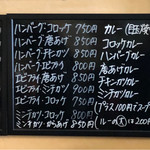 ハンバーグ・コロッケ 750円
ハンバーグ・唐あげ 850円
ハンバーグ・チキンカツ 850円
ハンバーグ・エビフライ 850円
エビフライ・唐あげ 850円
エビフライ・チキンカツ 900円
エビフライ・コロッケ 800円
ミンチカツ・コロッケ 750円
ミンチカツ・からあげ 850円
カレー
コロッケカレー
ハンバーグカレー
唐あげカレー
エビフライカレー
チキンカツカレー
ミンチカツカレー
プラス100円で
ルーの大は200円